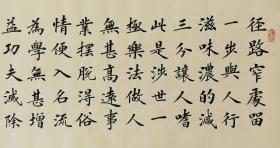 径路窄處留
一步與人行
滋味濃的減
三分讓人嗜
此是涉世一
極樂法做人
無甚高遠事
業擺脫得俗
情便入名流
為學無甚增
益功夫減除